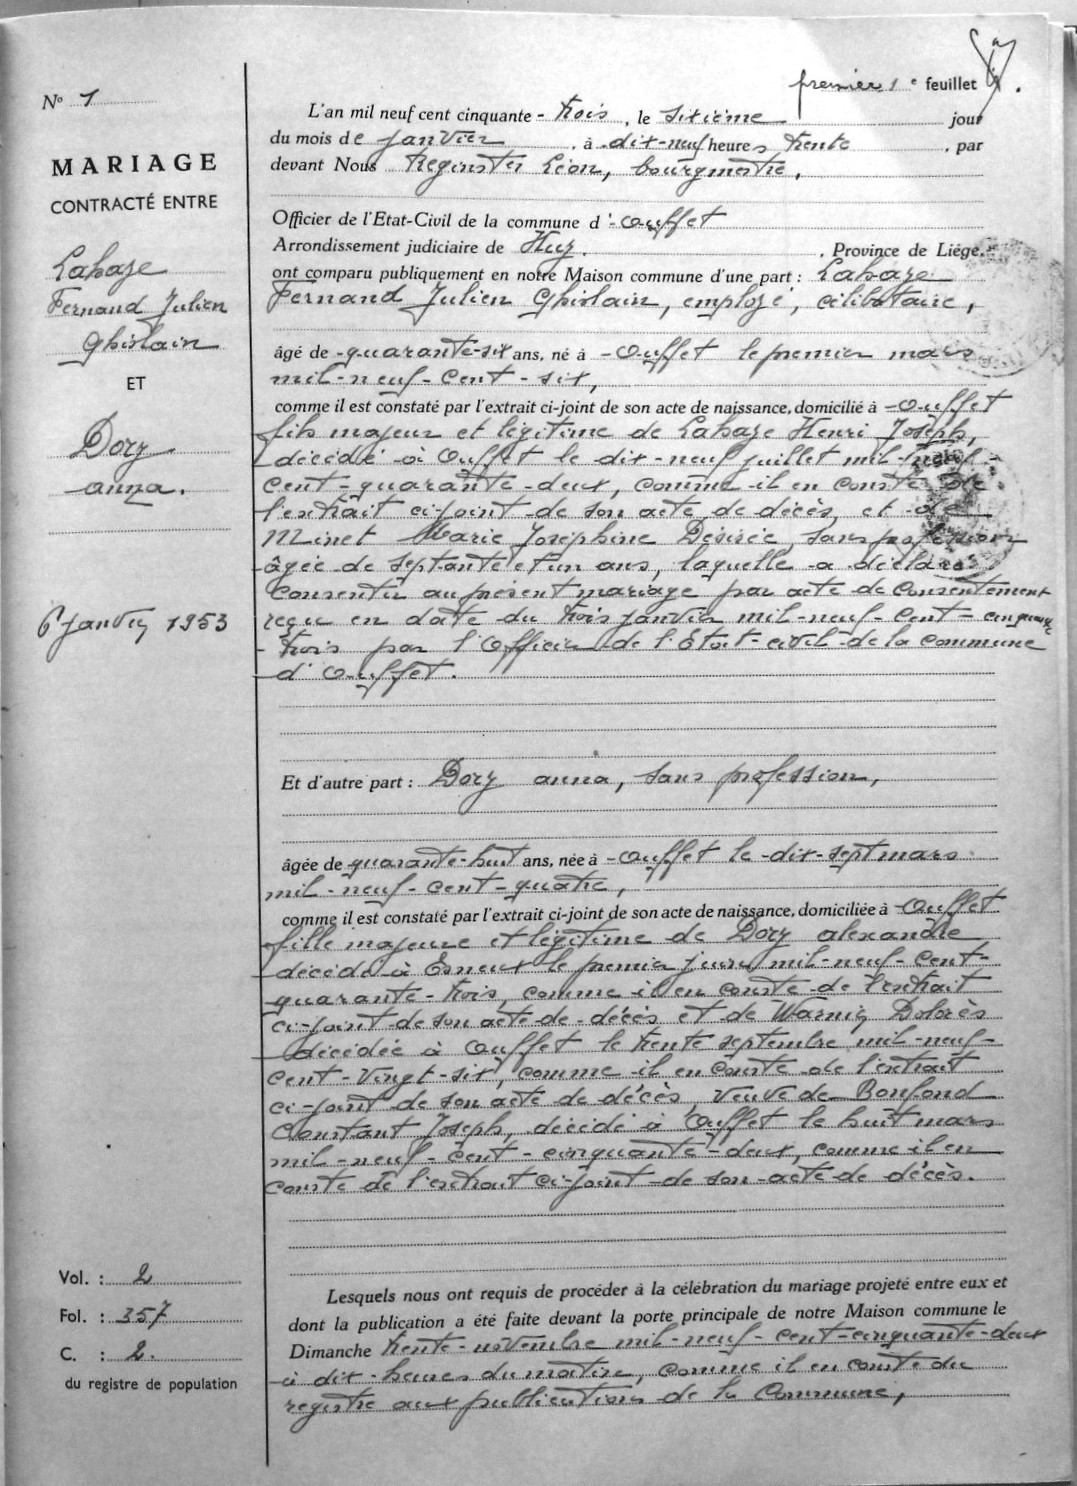 premier 1e feuillet
N° 1
L'an mil neuf cent cinquante - trois, le sixième jour
du mois de janvier, à dix-neuf heures trente, par
devant Nous Reginster Léon, bourgmestre,
MARIAGE
CONTRACTÉ ENTRE
Officier de l'Etat-Civil de la commune d'Ouffet
Arrondissement judiciaire de Huy, Province de Liége,
ont comparu publiquement en notre Maison commune d'une part : Lahaye
Fernand Julien Ghislain, employé, célibataire,
Lahaye
Fernand Julien
Ghislain
ET
Dory
anna.
âgé de quarante-six ans, né à Ouffet le premier mars
mil-neuf-cent-six,
comme il est constaté par l'extrait ci-joint de son acte de naissance, domicilié à Ouffet
fils majeur et légitime de Lahaye Henri Joseph,
décédé à Ouffet le dix-neuf juillet mil-neuf-
cent-quarante-deux, comme il en conste de
l'extrait ci-joint de son acte de décès, et de
Minet Marie Joséphine Désirée, sans profession
âgée de septante et un ans, laquelle a déclaré
consentir au présent mariage par acte de consentement
reçu en date du trois janvier mil-neuf-cent-cinquante
trois par l'Officier de l'Etat-civil de la commune
d'Ouffet.
6 janvier 1953
Et d'autre part : Dory anna, sans profession,
âgée de quarante-huit ans, née à Ouffet le dix-sept mars
mil-neuf-cent-quatre,
comme il est constaté par l'extrait ci-joint de son acte de naissance, domiciliée à Ouffet
fille majeure et légitime de Dory alexandre
décédé à Esneux le premier juin mil-neuf-cent-
quarante-trois, comme il en conste de l'extrait
ci-joint de son acte de décès et de Warnig Dolorès
décédée à Ouffet le trente septembre mil-neuf-
cent-vingt-six, comme il en conste de l'extrait
ci-joint de son acte de décès, veuve de Bonfond
Constant Joseph, décédé à Ouffet le huit mars
mil-neuf-cent-cinquante-deux, comme il en
conste de l'extrait ci-joint de son acte de décès.
Vol. : 2
Fol. : 357
C. : 2.
du registre de population
Lesquels nous ont requis de procéder à la célébration du mariage projeté entre eux et
dont la publication a été faite devant la porte principale de notre Maison commune le
Dimanche trente-novembre mil-neuf-cent-cinquante-deux
à dix-heures du matin, comme il en conste du
registre aux publications de la Commune,